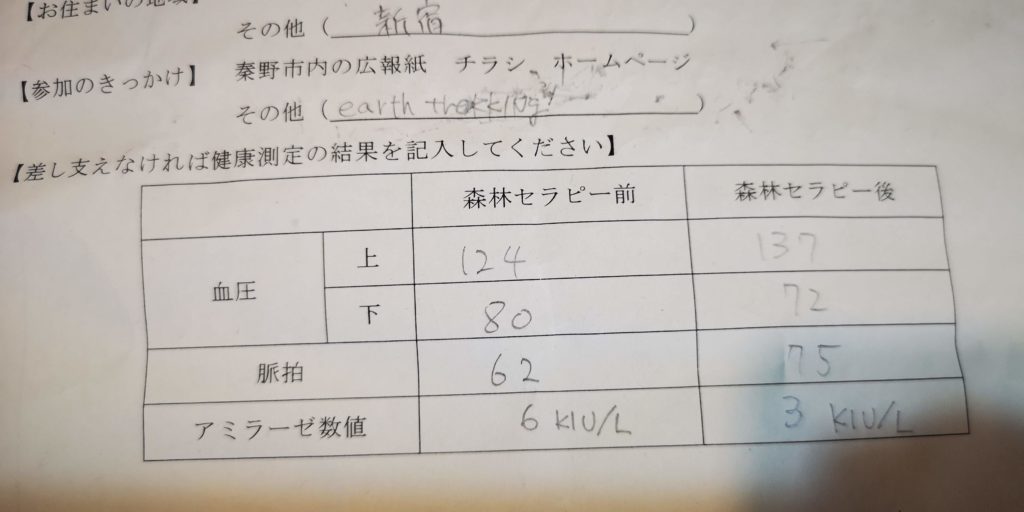 【お住まいの地域】
その他（新宿）
【参加のきっかけ】 秦野市内の広報紙 チラシ ホームページ
その他（earth trekking）
【差し支えなければ健康測定の結果を記入してください】
森林セラピー前 森林セラピー後
血圧 上 124 137
下 80 72
脈拍 62 75
アミラーゼ数値 6 KIU/L 3 KIU/L